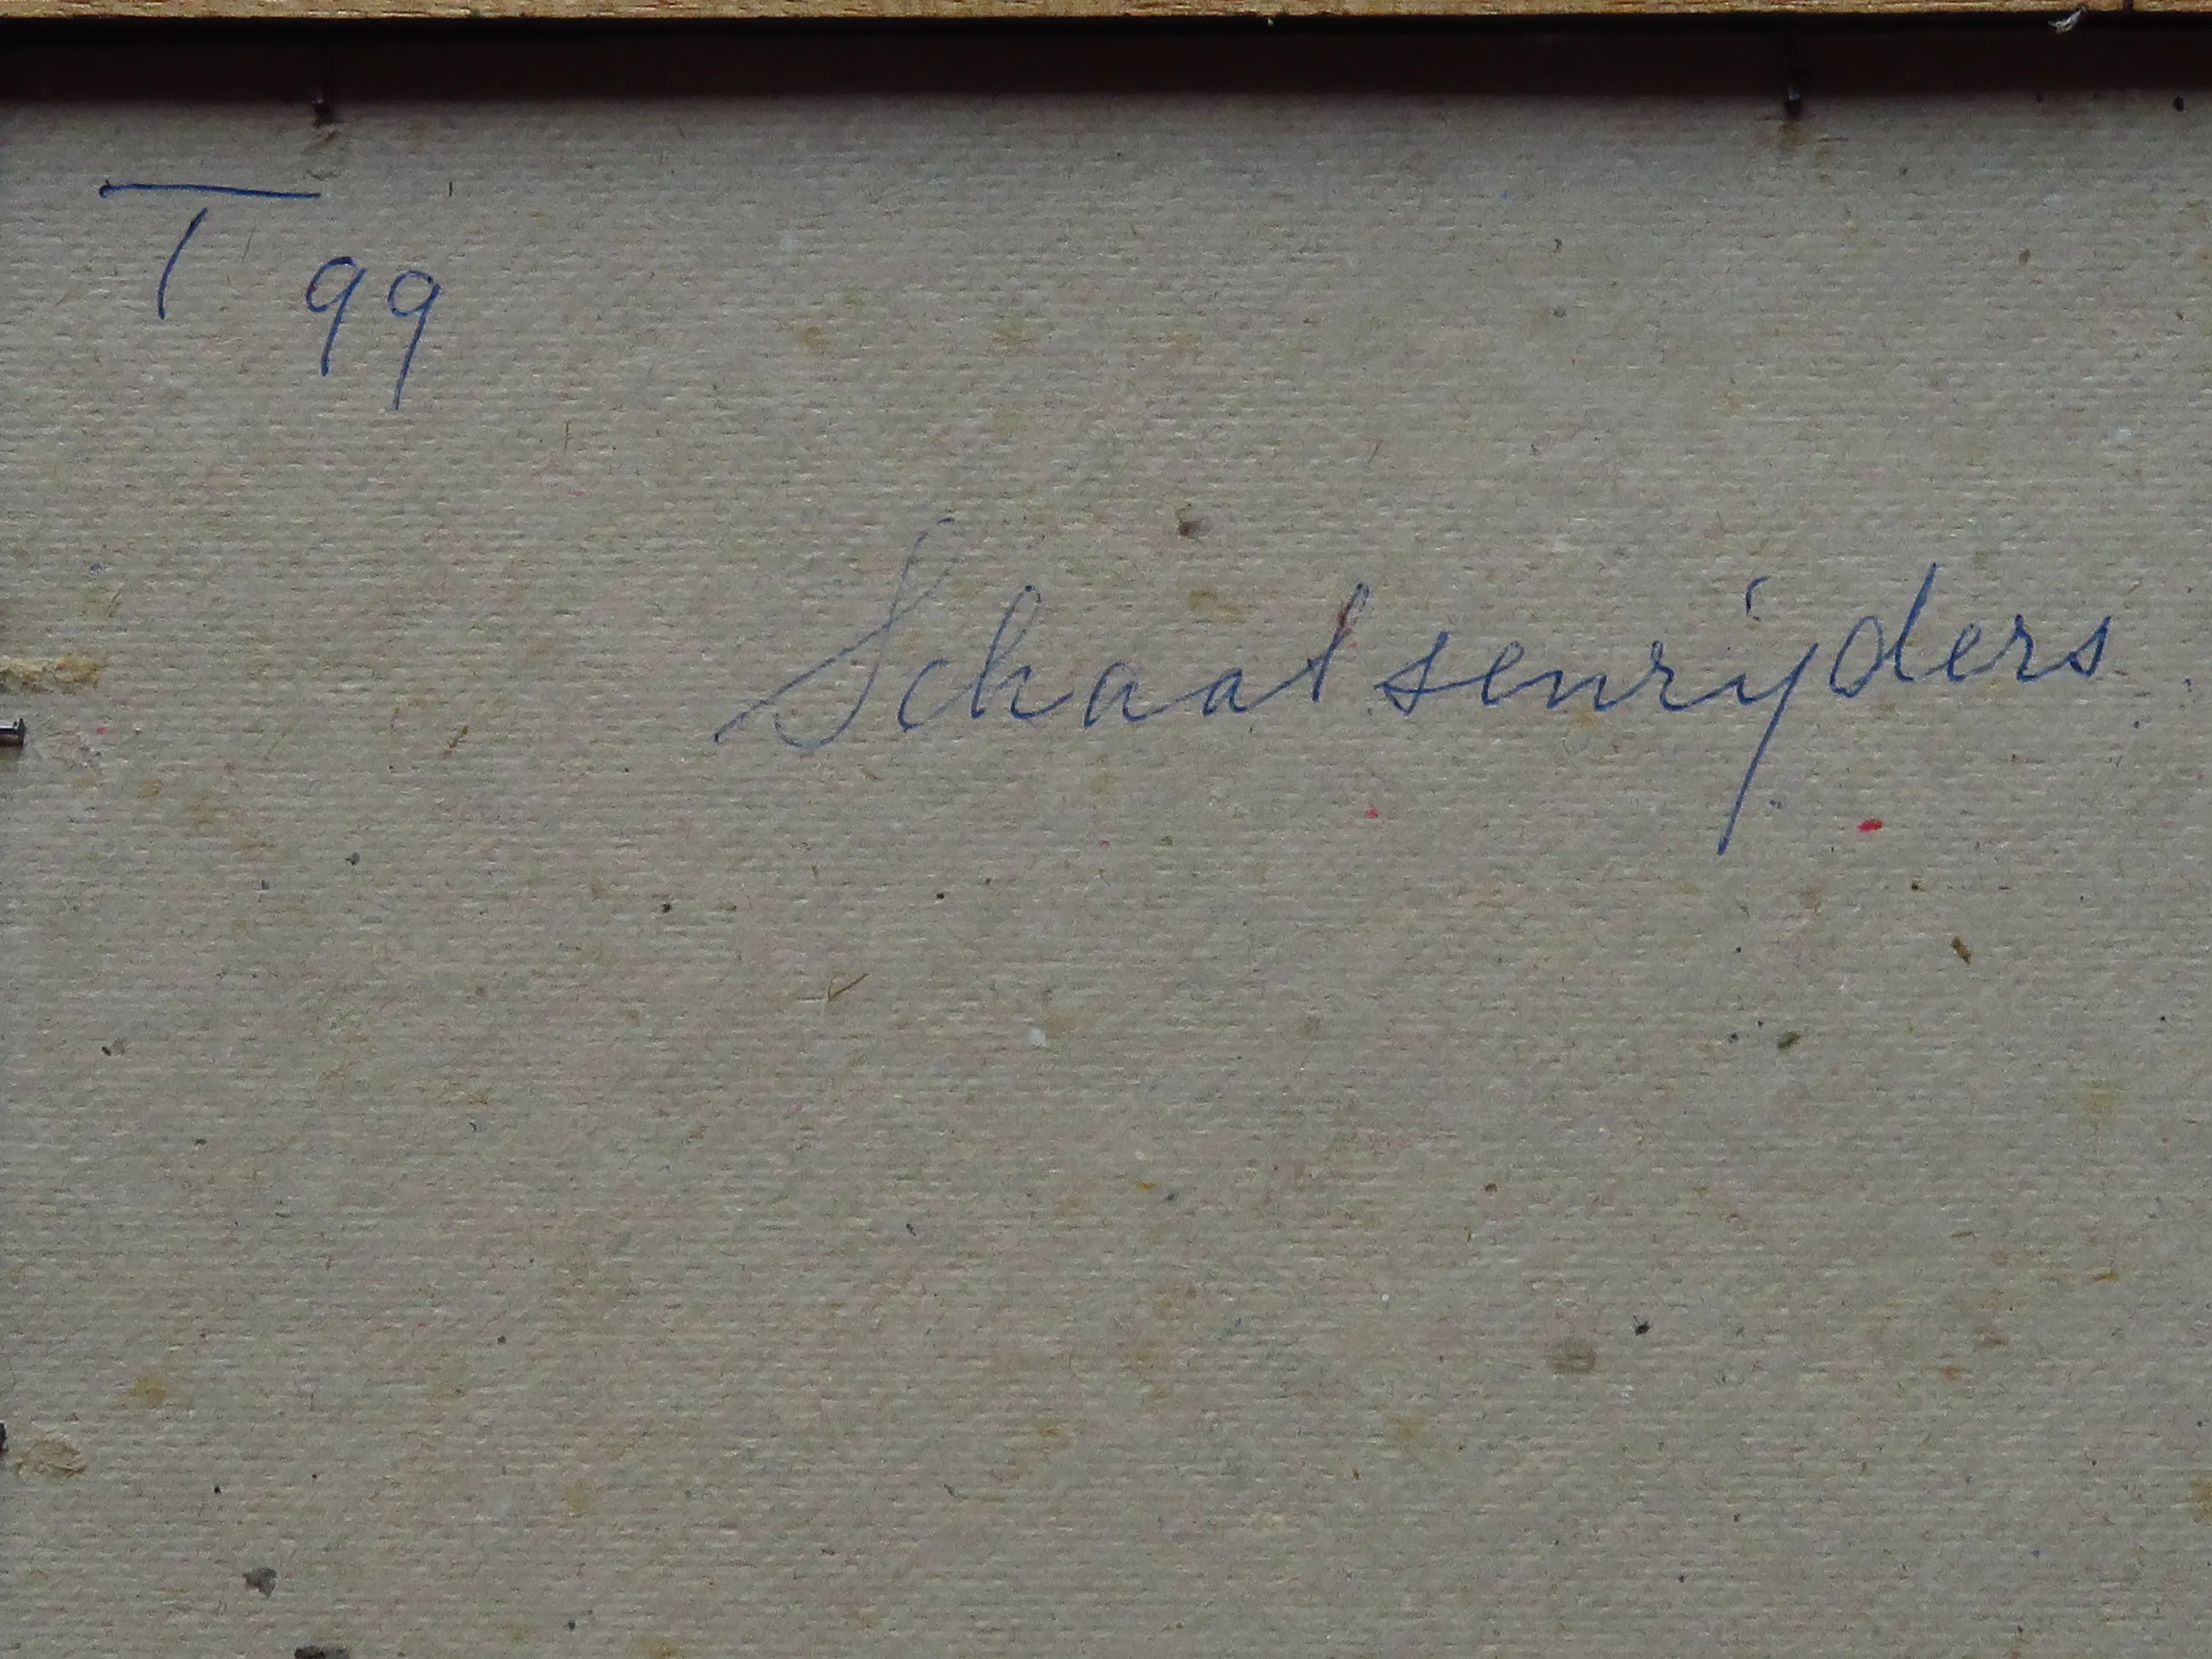 T 99
Schaatsenrijders